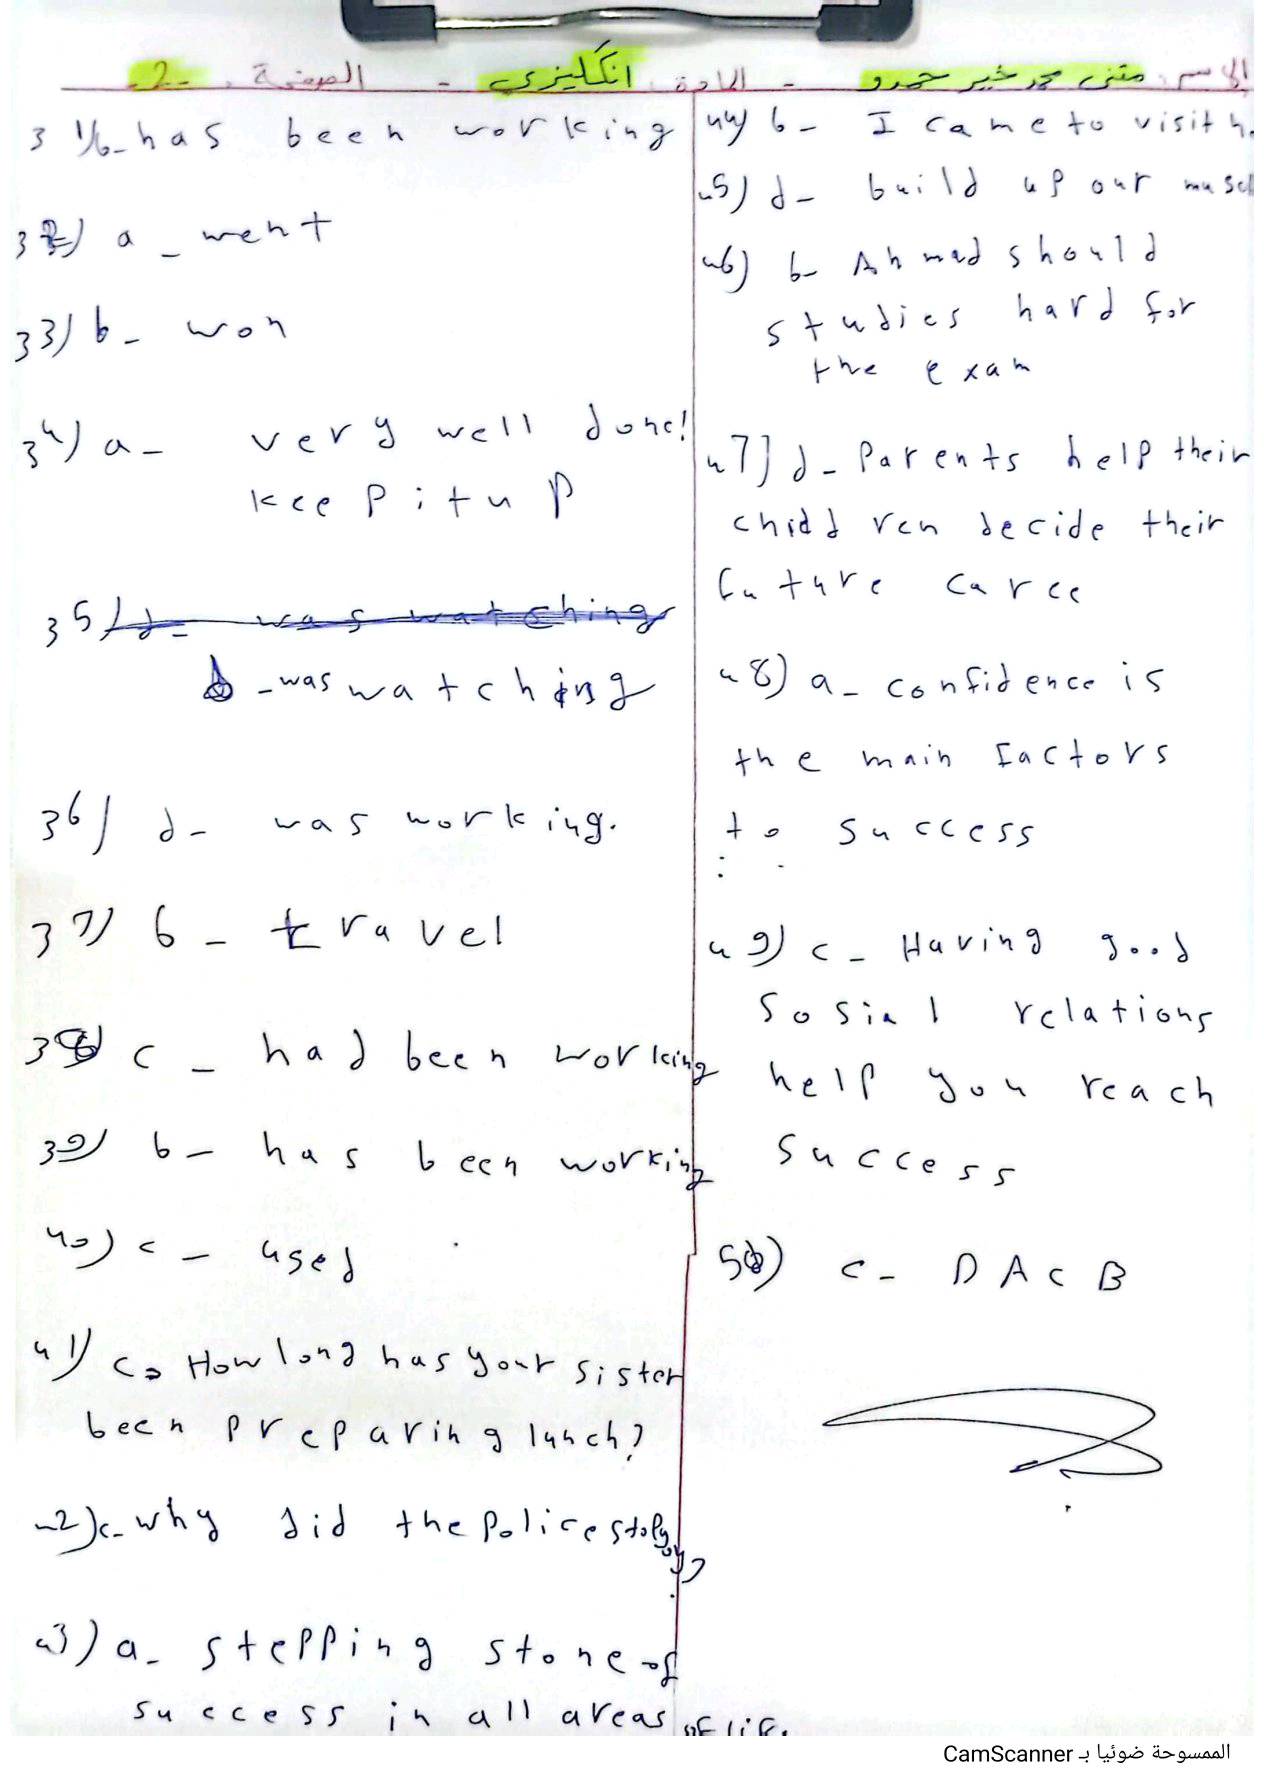 الاسم: مثنى محمد خير حمدو - المادة: انكليزي - الصفحة: -2-
31/b- has been working
32) a - went
33) b - won
34) a - very well done!
keep it up
35) d- was watching
b - was watching
36) d- was working.
37) b - travel
38) c - had been working
39) b - has been working
40) c - used
41) c- How long has your sister
been preparing lunch?
42) c- why did the police stop you?
43) a- stepping stone of
success in all areas of life
44) b- I came to visit h
45) d- build up our muscl
46) b- Ahmad should
studies hard for
the exam
47) d- Parents help their
childdren decide their
future caree
48) a- confidence is
the main factors
to success
49) c- Having good
sosial relations
help you reach
success
50) c- D A C B
الممسوحة ضوئيا بـ CamScanner